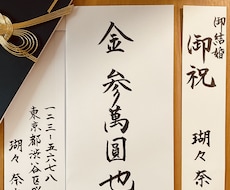 御結婚
御祝
瑚々奈
金参萬圓也
一二三-五六七八
東京都渋谷区
瑚々奈